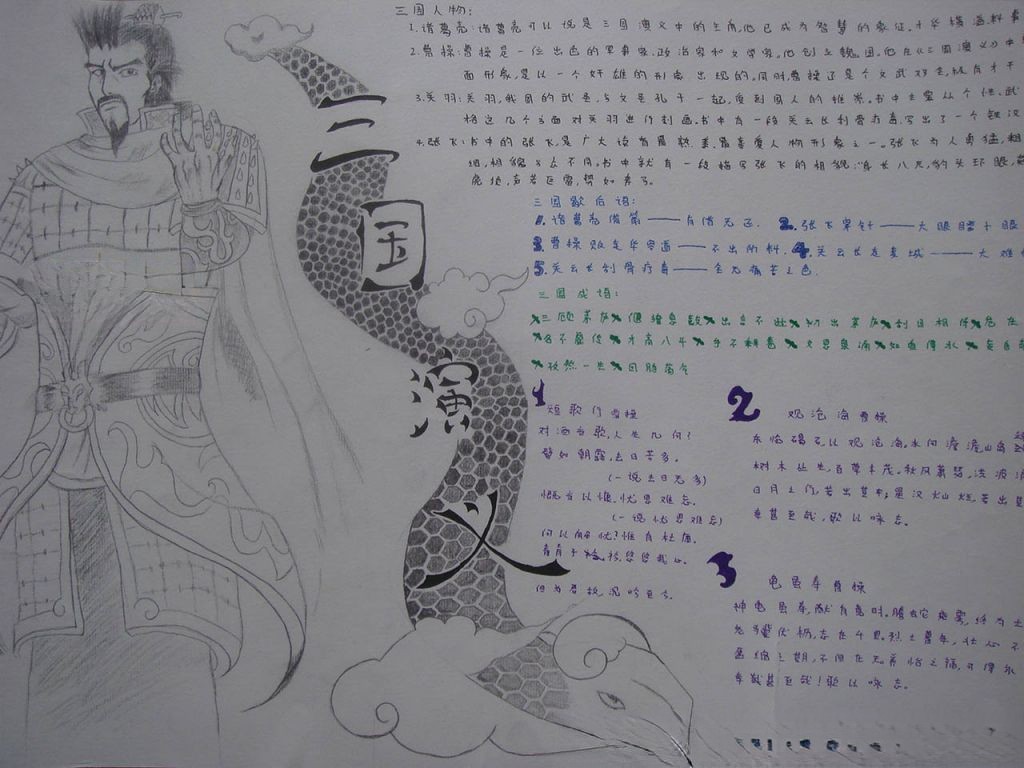 三国人物:
1.诸葛亮:诸葛亮可以说是三国演义中的主角,他已成为智慧的象征。才华横溢,料事
2.曹操:曹操是一位出色的军事家,政治家和文学家。他创立魏国,他在《三国演义》中
面形象,是以一个奸雄的形象出现的。同时曹操又是个文武双全,极有才干
3.关羽:关羽,我国的武圣,与文圣孔子一起,受到国人的推崇。书中主要从个性、武
将这几个方面对关羽进行刻画。书中有一段关云长刮骨疗毒,写出了一个铁汉
4.张飞:书中的张飞,是广大读者最熟悉最喜爱人物形象之一。张飞为人勇猛,粗
细,相貌又与众不同。书中就有一段描写张飞的相貌:身长八尺,豹头环眼,
虎须,声若巨雷,势如奔马。
三国歇后语:
1.诸葛亮借箭——有借无还 2.张飞穿针——大眼瞪小眼
3.曹操败走华容道——不出所料 4.关云长走麦城——大难
5.关云长刮骨疗毒——全无痛苦之色
三国成语:
三顾茅庐 出言不逊 初出茅庐 刮目相待 危在
才高八斗 手不释卷 文思泉涌 如鱼得水
孑然一身
三
国
演
义
1
短歌行 曹操
对酒当歌,人生几何?
譬如朝露,去日苦多。
(一说去日无多)
慨当以慷,忧思难忘。
(一说忧思难忘)
何以解忧?惟有杜康。
青青子衿,悠悠我心。
但为君故,沉吟至今。
2
观沧海 曹操
东临碣石,以观沧海。水何澹澹,山岛
树木丛生,百草丰茂。秋风萧瑟,洪波
日月之行,若出其中;星汉灿烂,若出其
幸甚至哉,歌以咏志。
3
龟虽寿 曹操
神龟虽寿,犹有竟时。腾蛇乘雾,终为土
老骥伏枥,志在千里。烈士暮年,壮心不
盈缩之期,不但在天;养怡之福,可得永
幸甚至哉!歌以咏志。